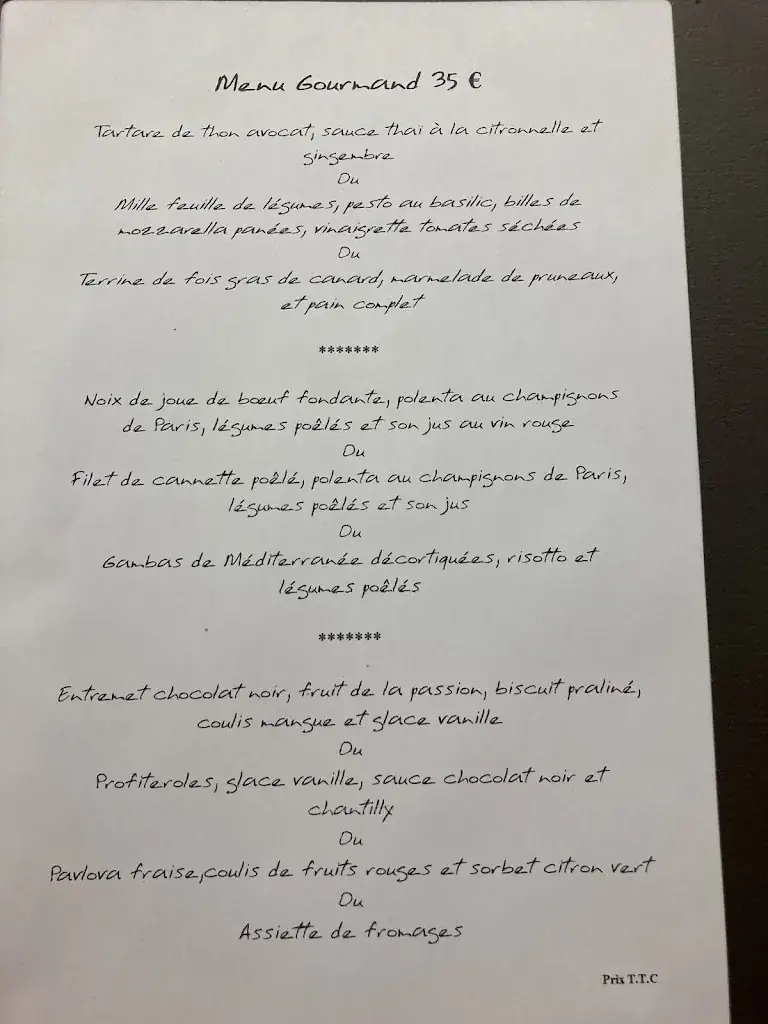 Menu Gourmand 35 €
Tartare de thon avocat, sauce thaï à la citronnelle et
gingembre
Ou
Mille feuille de légumes, pesto au basilic, billes de
mozzarella panées, vinaigrette tomates séchées
Ou
Terrine de fois gras de canard, marmelade de pruneaux,
et pain complet
*******
Noix de joue de bœuf fondante, polenta au champignons
de Paris, légumes poêlés et son jus au vin rouge
Ou
Filet de cannette poêlé, polenta au champignons de Paris,
légumes poêlés et son jus
Ou
Gambas de Méditerranée décortiquées, risotto et
légumes poêlés
*******
Entremet chocolat noir, fruit de la passion, biscuit praliné,
coulis mangue et glace vanille
Ou
Profiteroles, glace vanille, sauce chocolat noir et
chantilly
Ou
Pavlova fraise,coulis de fruits rouges et sorbet citron vert
Ou
Assiette de fromages
Prix T.T.C